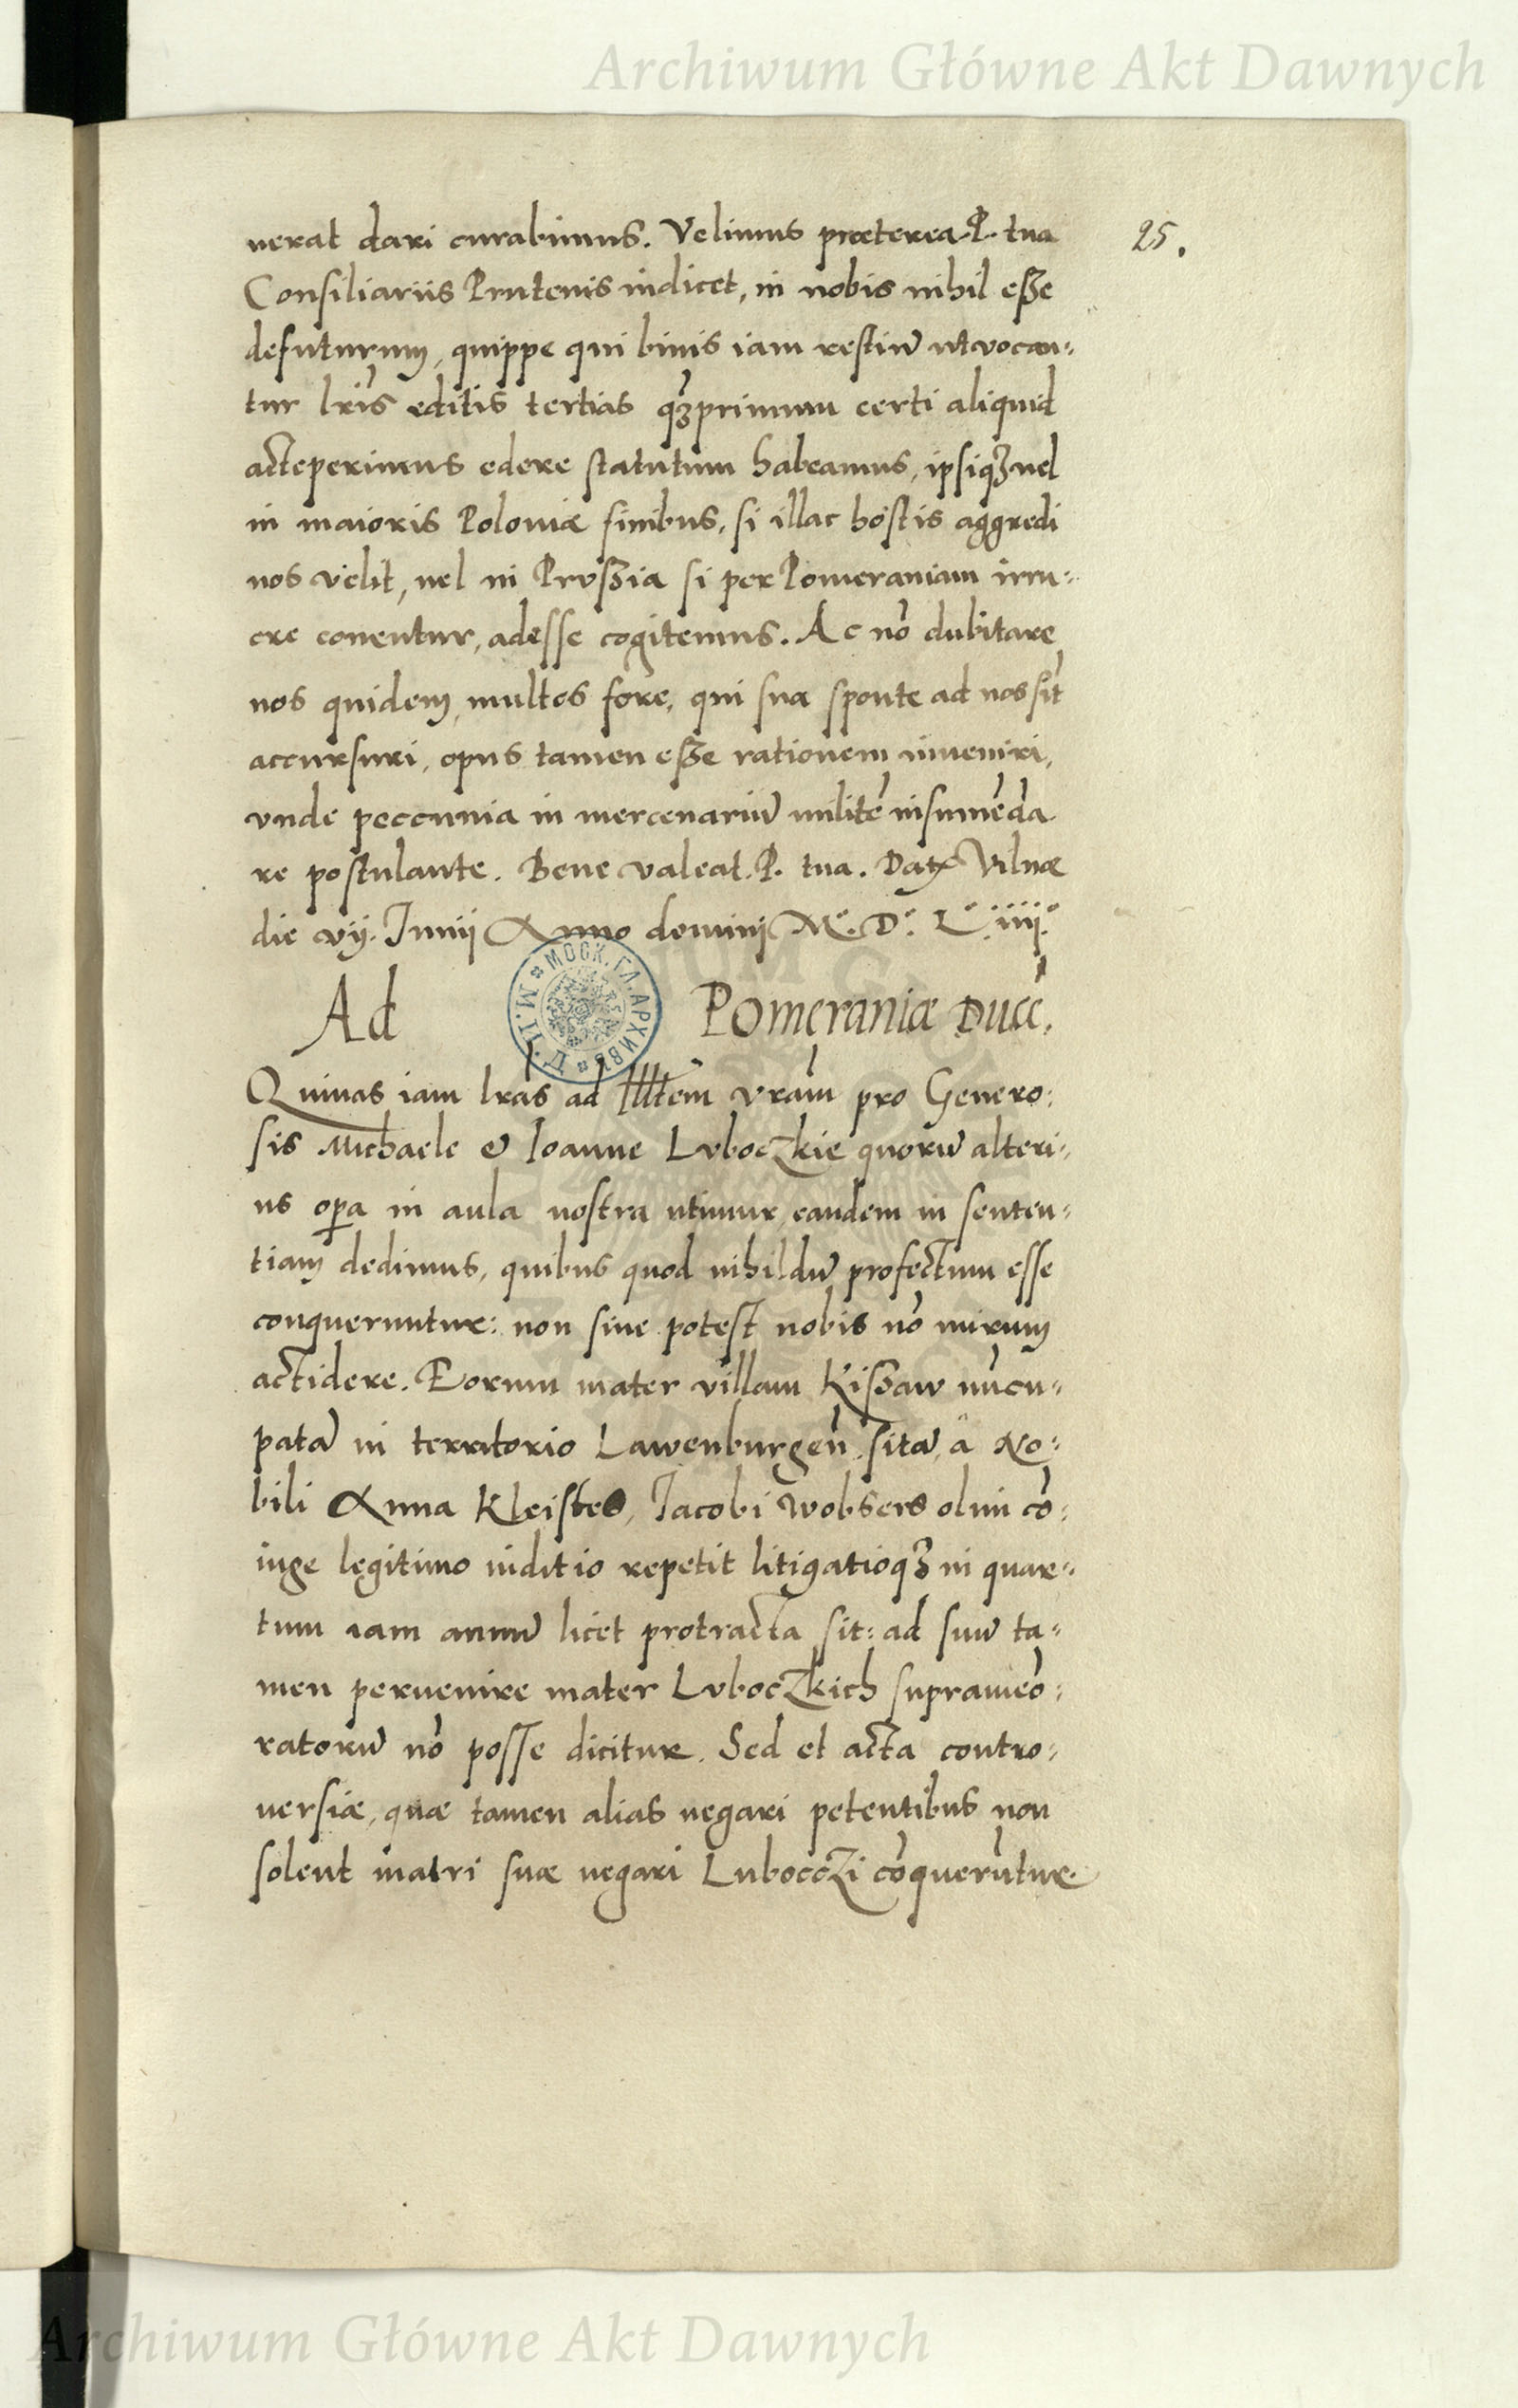 Archiwum Główne Akt Dawnych
25.
uerat dari curabimus. Velimus præterea .P. tua
Consiliariis Prutenis indicet, in nobis nihil eße
defuturum, quippe qui binis iam restiũ ut vocan-
tur lr̃is editis tertias q̃ȝprimum certi aliquid
acceperimus edere statutum habeamus, ipsiqȝ uel
in maioris Poloniæ finibus, si illac hostis aggredi
nos velit, uel in Prußia si per Pomeraniam irru-
ere conentur, adesse cogitemus. Ac nõ dubitare
nos quidem, multos fore, qui sua sponte ad nos sĩt
accursuri, opus tamen eße rationem inueniri,
vnde peccunia in mercenariũ militẽ insumẽda
re postulante. Bene valeat .P. tua. Datȝ Vilnæ
die vij. Junij Anno dominj M.° D.° L.° iiij.°
Ad Pomeraniæ Ducẽ.
МОСК. ГЛ. АРХИВЪ
Quinas iam lr̃as ad Illltem vram̃ pro Genero-
sis Michaele & Ioanne Lvboczkie quorũ alteri-
us opa in aula nostra utimur, eandem in senten-
tiam dedimus, quibus quod nihildũ profectum esse
conqueruntur: non sine potest nobis nõ mirum
accidere. Eorum mater villam Kißaw nũcu-
patã in territorio Lawenburgeñ. sitã, â No-
bili Anna Kleistes, Jacobi Wobsers olim cõ-
iuge legitimo iuditio repetit litigatioqȝ in quar-
tum iam annũ licet protracta sit: ad suũ ta-
men peruenire mater Lvboczkich supramẽo-
ratorũ nõ posse dicitur. Sed et acta contro-
uersiæ, quæ tamen alias negari petentibus non
solent matri suæ negari Luboczi cõquerũtur.
Archiwum Główne Akt Dawnych